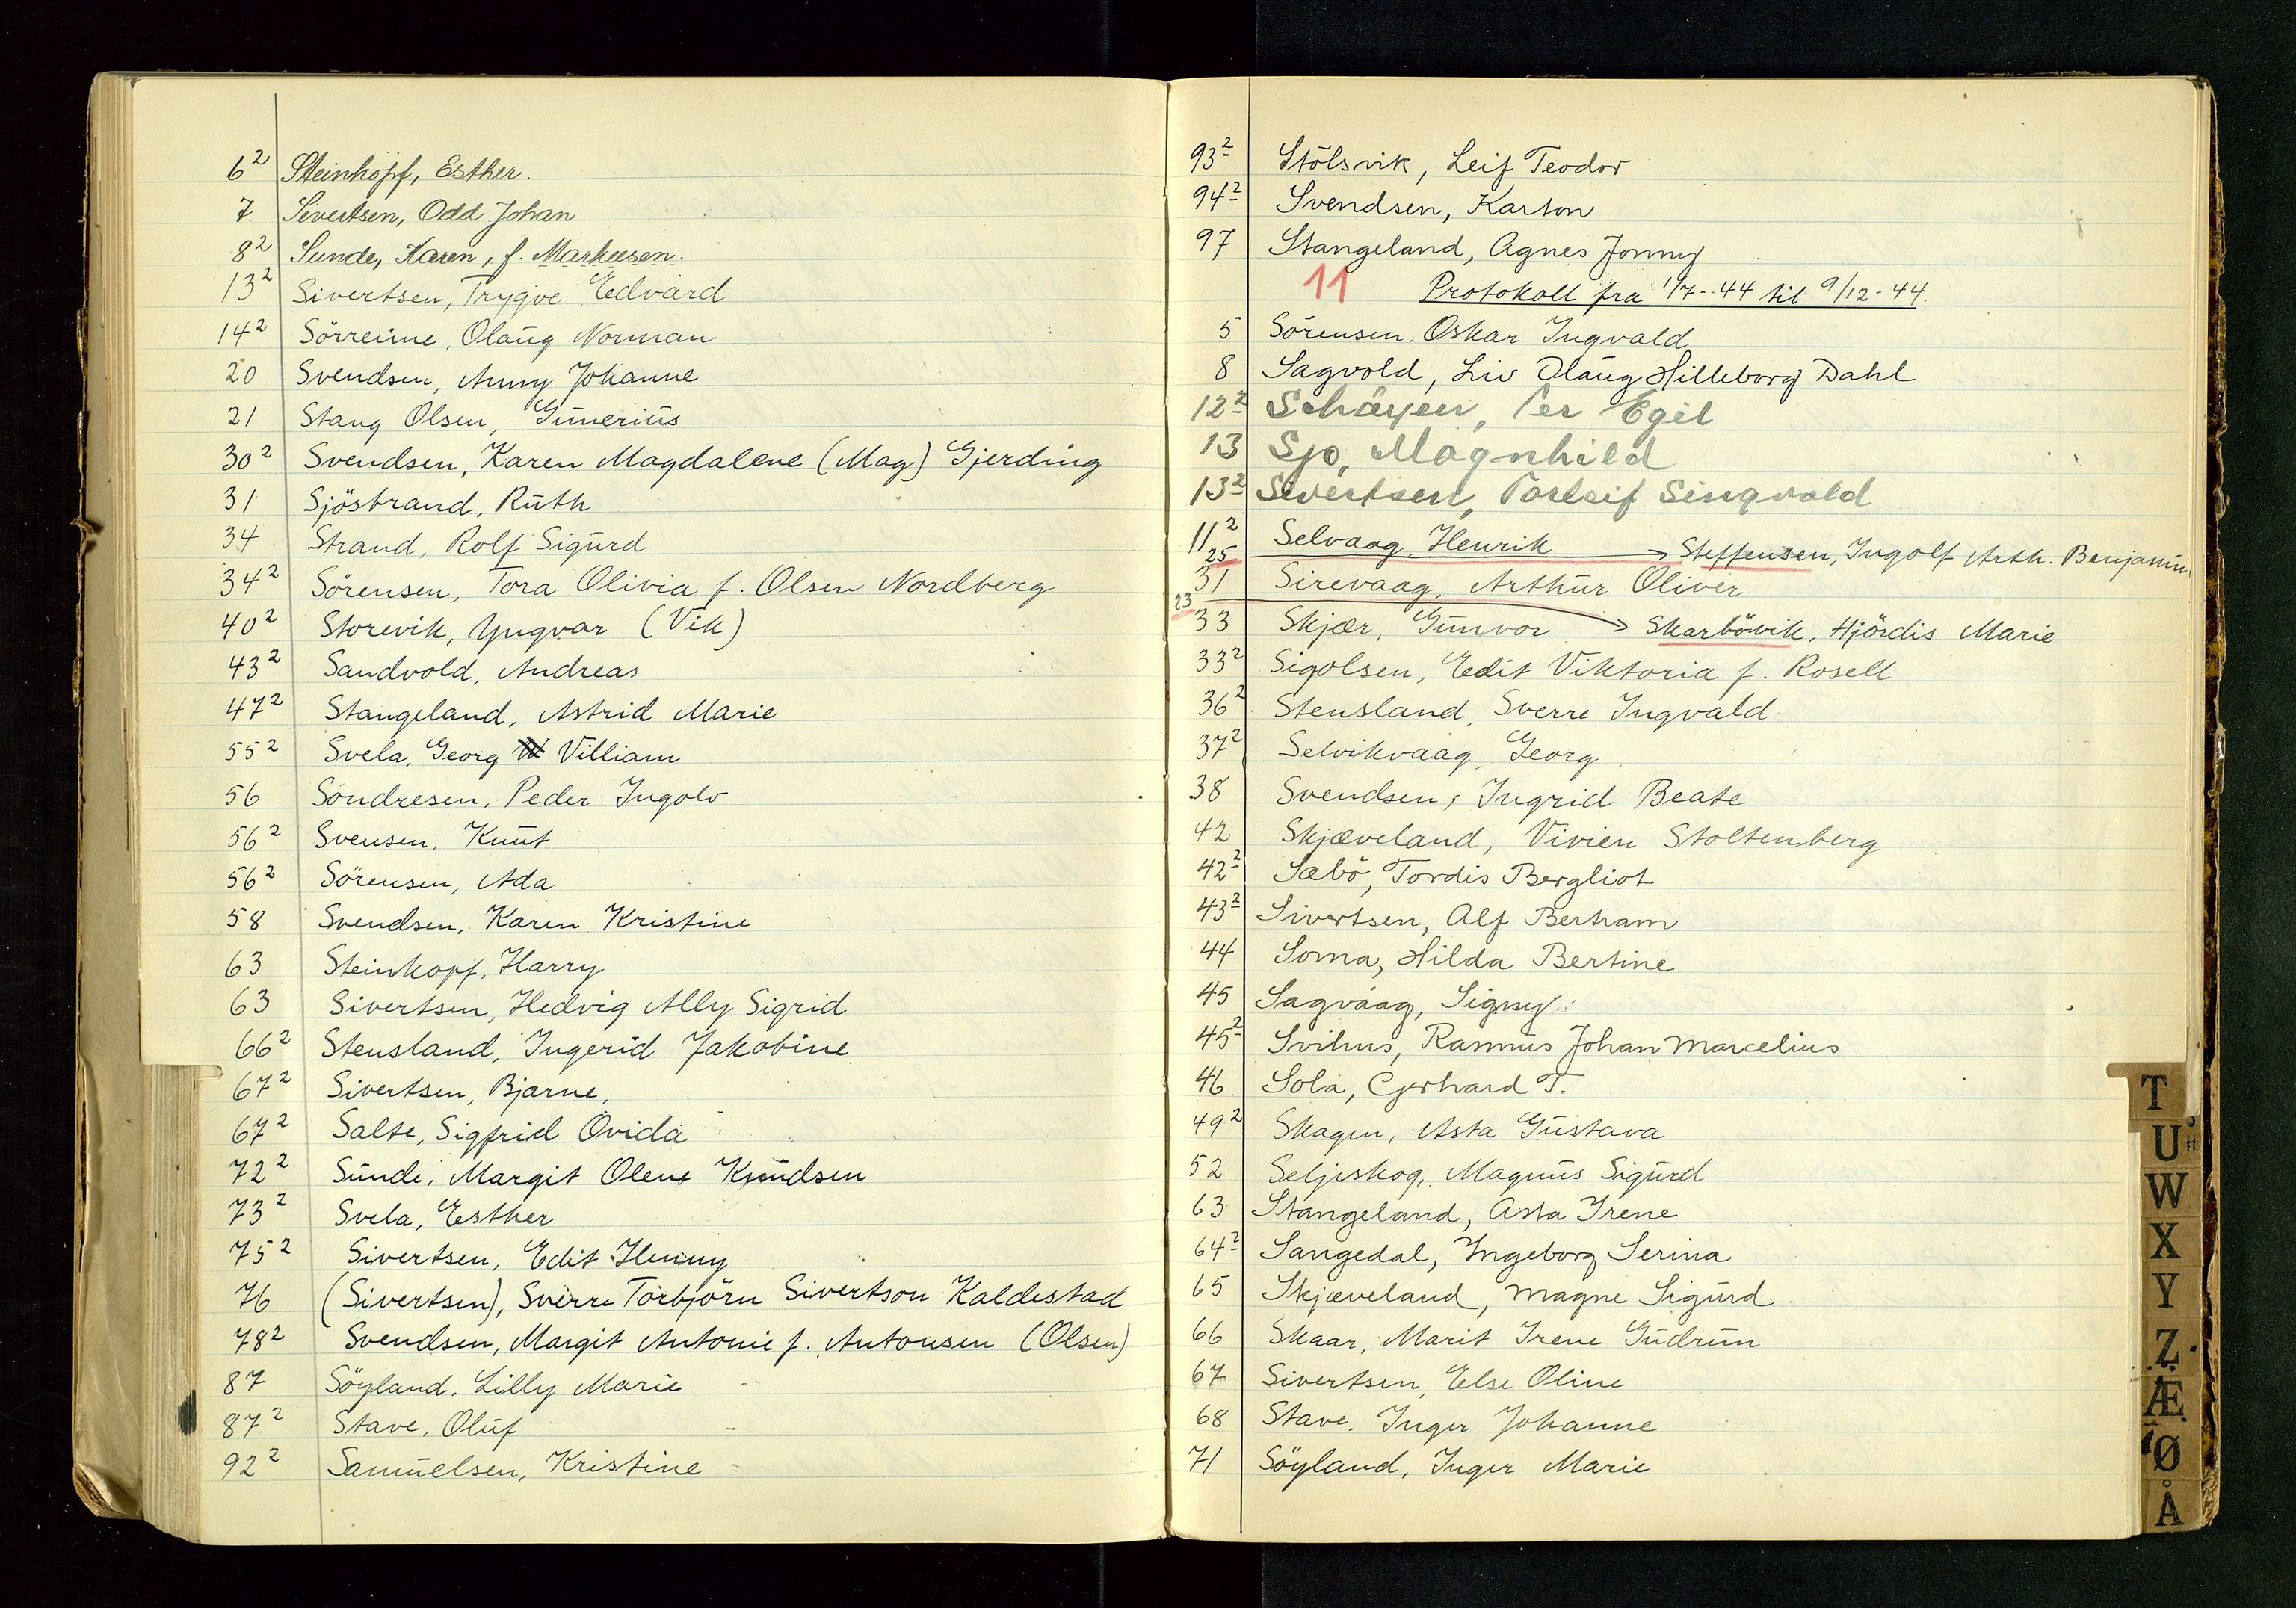 6² Steinkopf, Esther.
7. Sivertsen, Odd Johan
8² Sunde, Karen, f. Markussen.
13² Sivertsen, Trygve Edvard
14² Sörreime, Olaug Norman
20 Svendsen, Anny Johanne
21 Stang Olsen, Gunerius
30² Svendsen, Karen Magdalene (Mag) Gjerding
31 Sjöstrand, Ruth
34 Strand, Rolf Sigurd
34² Sörensen, Tora Olivia f. Olsen Nordberg
40² Storevik, Yngvar (Vik)
43² Sandvold, Andreas
47² Stangeland, Astrid Marie
55² Svela, Georg Villiam
56 Söndresen, Peder Ingolv
56² Svensen, Knut
56² Sörensen, Ada
58 Svendsen, Karen Kristine
63 Steinkopf, Harry
63 Sivertsen, Hedvig Ally Sigrid
66² Stensland, Ingerid Jakobine
67² Sivertsen, Bjarne,
67² Salte, Sigfrid Ovida
72² Sunde, Margit Olene Knudsen
73² Svela, Esther
75² Sivertsen, Edit Henny
76 (Sivertsen), Sverre Torbjörn Sivertson Kaldestad
78² Svendsen, Margit Antonie f. Antonsen (Olsen)
87 Söyland, Lilly Marie
87² Stave, Oluf
92² Samuelsen, Kristine
93² Stölsvik, Leif Teodor
94² Svendsen, Karton
97 Stangeland, Agnes Jonny
11 Protokoll fra 1/7-44 til 9/12-44.
5 Sörensen. Oskar Ingvald
8 Sagvold, Liv Olaug Hilleborg Dahl
12² Schäyen, Per Egil
13 Sjo, Magnhild
13² Sivertsen, Torleif Singvald
11² Selvaag, Henrik
25 → Steffensen, Ingolf Arth. Benjamin
31 Sirevaag, Arthur Oliver
33 Skjær, Gunvor
23 → Skarbövik, Hjördis Marie
33² Sigolsen, Edit Viktoria f. Rosell
36² Stensland, Sverre Ingvald
37² Selvikvaag, Georg
38 Svendsen, Ingrid Beate
42 Skjæveland, Vivien Stoltenberg
42² Sæbö, Tordis Bergliot
43² Sivertsen, Alf Bertram
44 Soma, Hilda Bertine
45 Sagvaag, Signy
45² Svihus, Rasmus Johan Marcelius
46 Sola, Gerhard T.
49² Skagen, Asta Gustava
52 Seljeskog, Magnus Sigurd
63 Stangeland, Asta Irene
64² Sangedal, Ingeborg Serina
65 Skjæveland, Magne Sigurd
66 Skaar, Marit Irene Gudrun
67 Sivertsen, Else Oline
68 Stave, Inger Johanne
71 Söyland, Inger Marie
T
U
W
X
Y
Z
Æ
Ø
Å